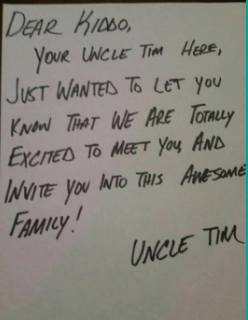 DEAR KIDDO,
YOUR UNCLE TIM HERE,
JUST WANTED TO LET YOU
KNOW THAT WE ARE TOTALLY
EXCITED TO MEET YOU, AND
INVITE YOU INTO THIS AWESOME
FAMILY!
UNCLE TIM